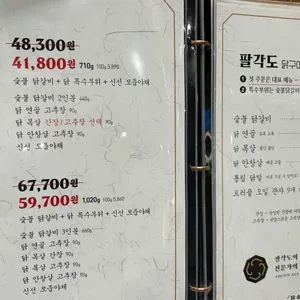 48,300원
41,800원 710g 100g 5,893
숯불 닭갈비 + 닭 특수부위 + 신선 모둠야채
숯불 닭갈비 2인분 440g
닭 연골 고추장 90g
닭 목살 간장/고추장 선택 90g
닭 안창살 고추장 90g
신선 모둠야채
67,700원
59,700원 1,020g 100g 5,860
숯불 닭갈비 + 닭 특수부위 + 신선 모둠야채
숯불 닭갈비 3인분 660g
닭 연골 고추장 90g
닭 목살 간장 90g
닭 목살 고추장 90g
닭 안창살 고추장 90g
신선 모둠야채
팔각도 닭구이
1 첫 주문은 대표 메뉴
2 특수부위는 숯불닭갈비
숯불 닭갈비
닭 연골
닭 목살
닭 안창살
트러플 오일 관자
팔각도의
전문가의